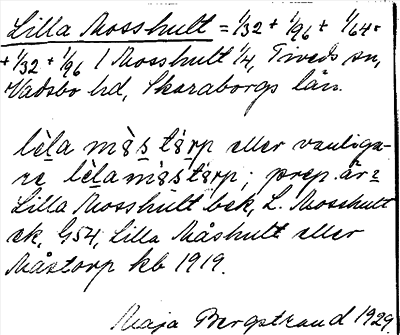 Lilla Mosshult = 1/32 + 1/96 + 1/64 +
+ 1/32 + 1/96 / Mosshult 1/4, Tiveds sn,
Vadsbo hd, Skaraborgs län.
lèla mòs tårp eller vanliga-
re lèla mòstårp; prep. är =
Lilla Mosshult bek, L. Mosshult
ek, G54, Lilla Måshult eller
Måstorp kb 1919.
Maja Bergstrand 1929.